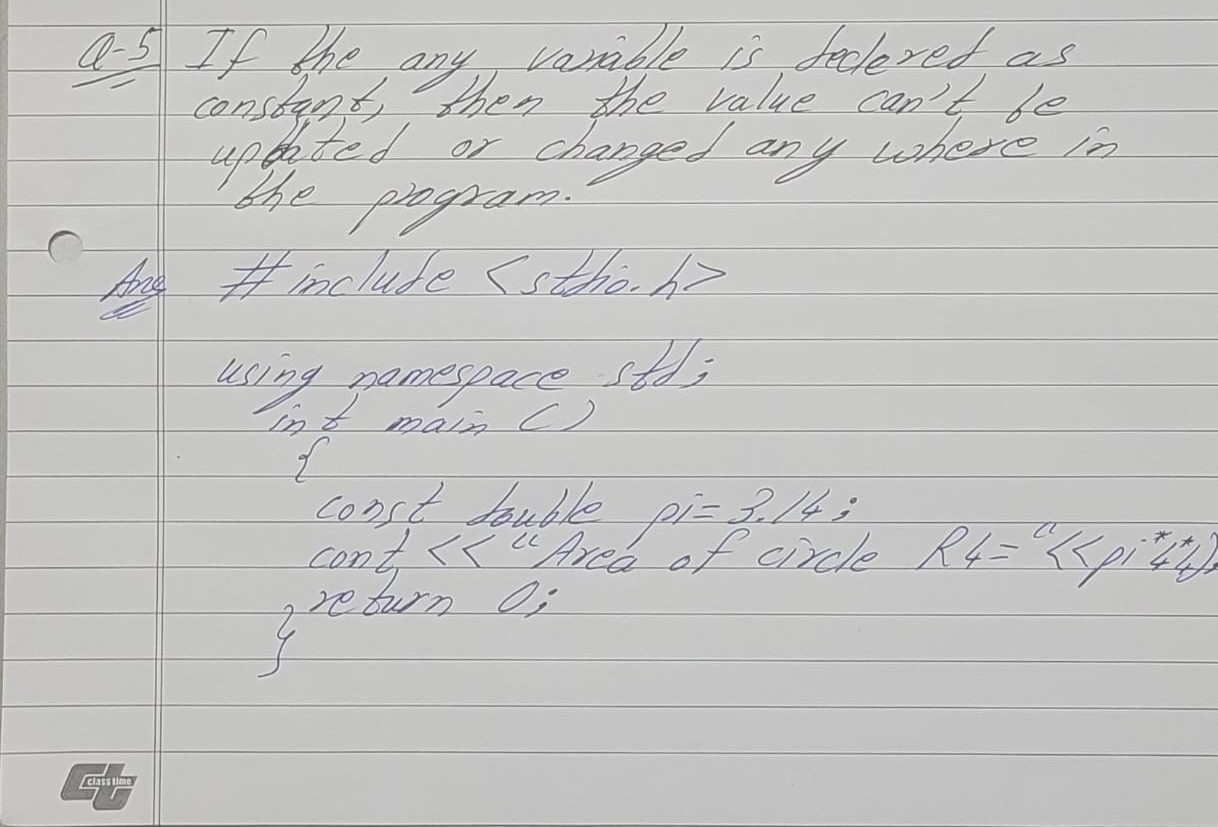 Q-5 If the any variable is declered as
constant, then the value can't be
updated or changed any where in
the program.
Ans # include <stdio.h>
using namespace std;
int main ()
{
const double pi = 3.14;
cout << "Area of circle R4 = " << pi*4*4);
return 0;
}
class time